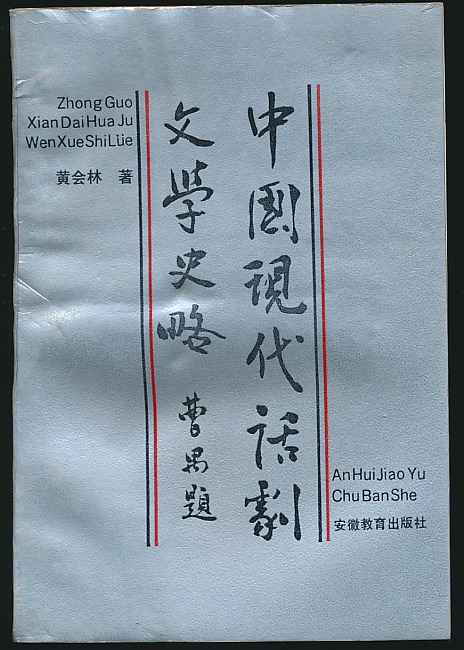 Zhong Guo
Xian Dai Hua Ju
Wen Xue Shi Lüe
黄会林 著
中國現代話劇
文學史略
曹禺題
An Hui Jiao Yu
Chu Ban She
安徽教育出版社